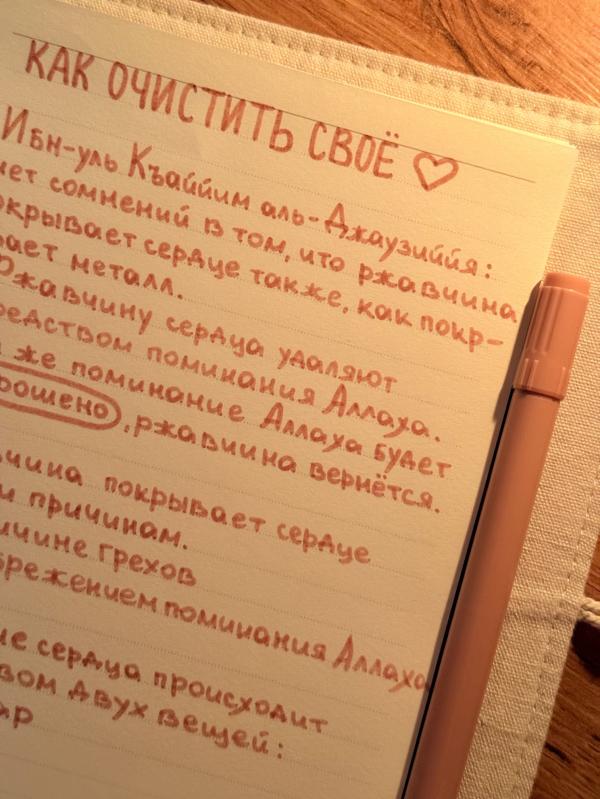 КАК ОЧИСТИТЬ СВОЁ ♡
Ибн-уль Къаййим аль-Джаузиййя:
сомнений в том, что ржавчина
сердце также, как покр-
металл.
Ржавчину сердца удаляют
поминания Аллаха.
же поминание Аллаха будет
, ржавчина вернётся.
покрывает сердце
причинам.
грехов
поминания Аллаха
сердца происходит
двух вещей: